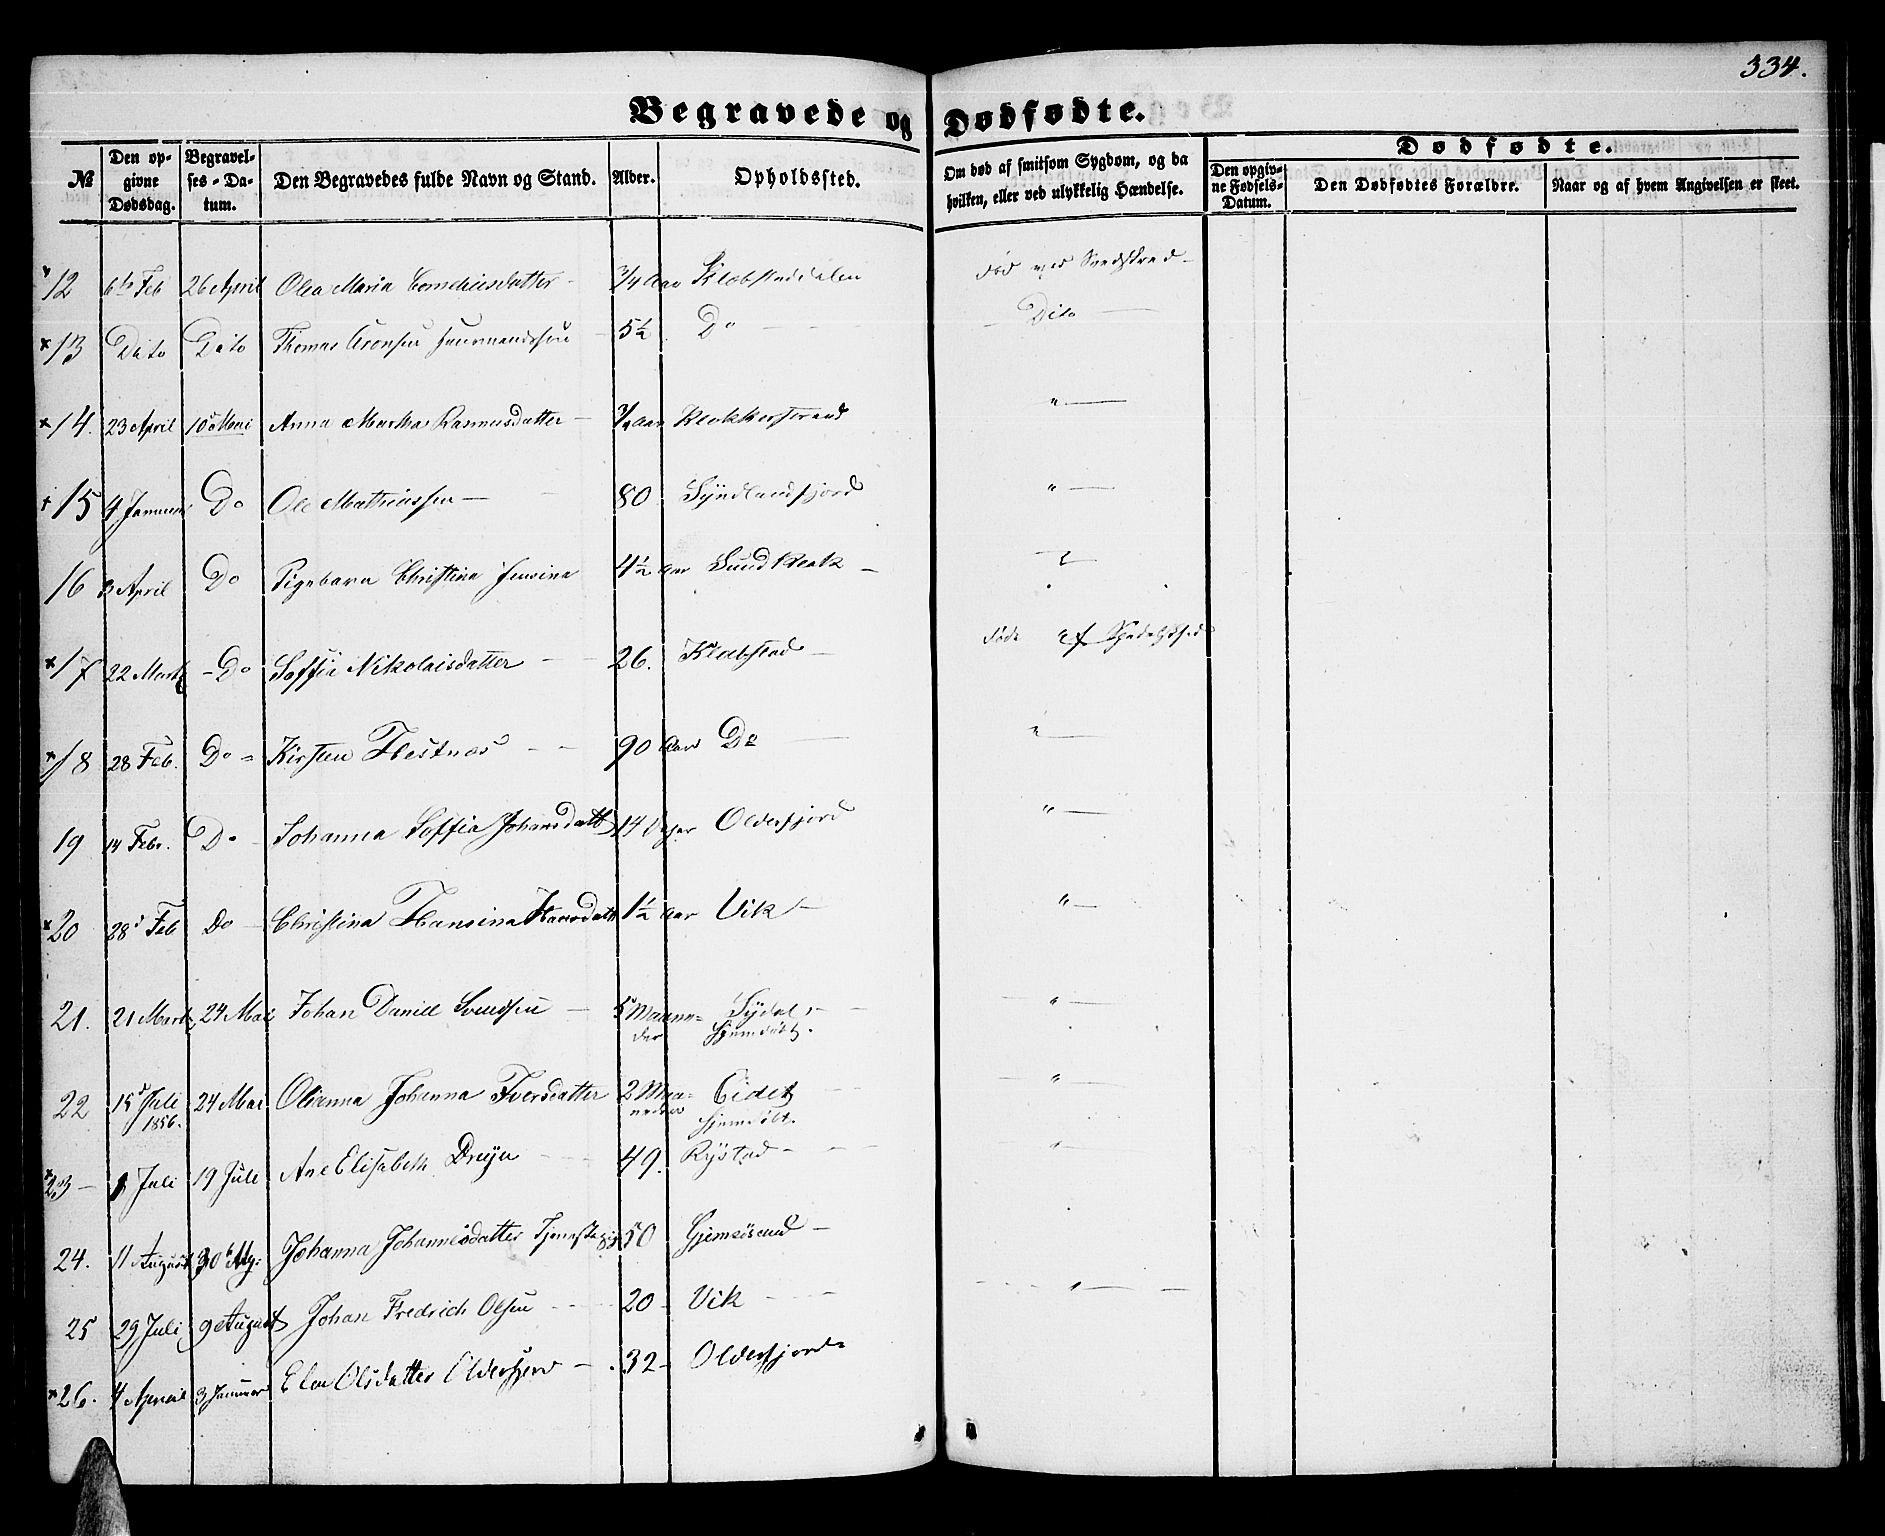 334.
Begravede og Dødfødte.
№ Den opgivne Dødsdag. Begravelses-Datum. Den Begravedes fulde Navn og Stand. Alder. Opholdssted. Om død af smitsom Sygdom, og da hvilken, eller ved ulykkelig Hændelse. Dødfødte.
Den opgivne Fødsels-Datum. Den Dødfødtes Forældre. Naar og af hvem Angivelsen er skeet.
12 6te Feb 26 April Olea Maria Corneliusdatter - 3/4 Aar død ved
× 13 Dito Dito Thomas 5½ Do - Dito -
× 14. 23 April 10 Mai Anna Martha Rasmusdatter - Aar Klokkerstrand " -
15 4 Januar Do Ole Mathiassen - 80 Syndlandsfjord " -
16 3 April Do Pigebarn Christina Jensina 4½ Aar Sund -
× 17 22 Marts - Do Soffie Nikolaisdatter - 26. Klebstad - døde af
× 18 28 Feb. Do - Kirsten Hestnes - 90 Aar Do -
19 14 Febr. Do - Johanna Soffia Johansdatt 14 Dager Oldersfjord " -
× 20 28 Feb Do - Christina Hansina Hansdatt 1½ Aar Vik - " -
21. 21 Marts 24 Mai Johan Daniel Svendsen - 5 Maaneder Sydal - Hjemdøbt. - " -
22 15 Juli 1856. 24 Mai Olianna Johanna Iversdatter 2 Maaneder Eidet Hjemdøbt. - " -
× 23 - 1 Juli 19 Juli Ane Elisabeth Dreyer - 49. Rystad - - " -
24. 11 August 30 Johanna Johannesdatter Tjenestepige 50 Gjemsøsund -
25 29 Juli 9 August Johan Fredrich Olsen - 20 - Vik - - " -
× 26. 4 April 3 Januar Elen Olsdatter Oldersfjord - 32 - Oldersfjord -